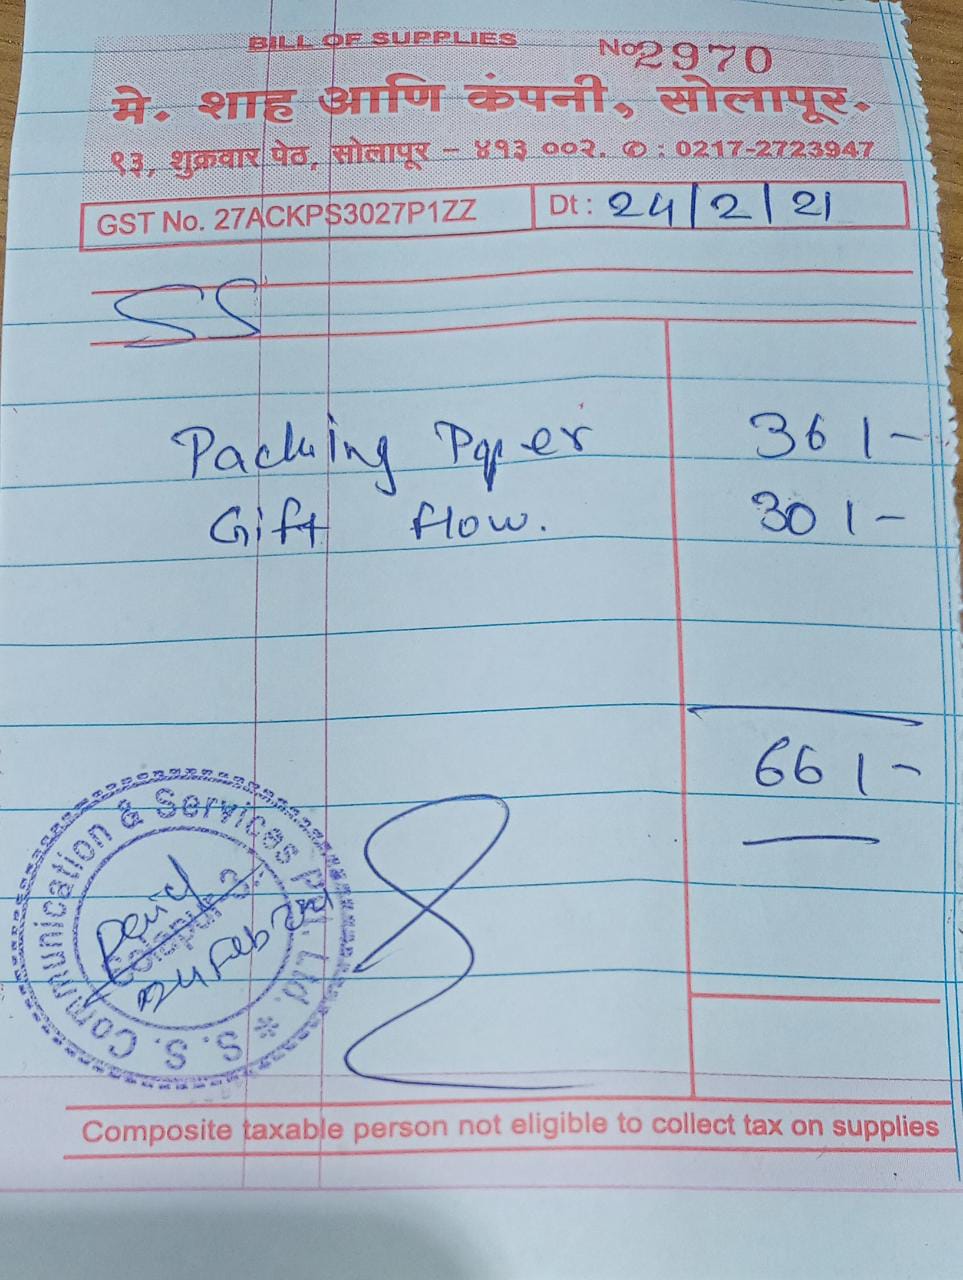 BILL OF SUPPLIES
No. 2970
मे. शाह आणि कंपनी, सोलापूर.
९३, शुक्रवार पेठ, सोलापूर - ४१३ ००२. ✆ : 0217-2723947
GST No. 27ACKPS3027P1ZZ
Dt : 24/2/21
SS
Packing Paper 36/-
Gift flow. 30/-
66/-
S. S. Communication & Services Pvt. Ltd. *
Solapur
Paid
24 Feb 2021
Composite taxable person not eligible to collect tax on supplies